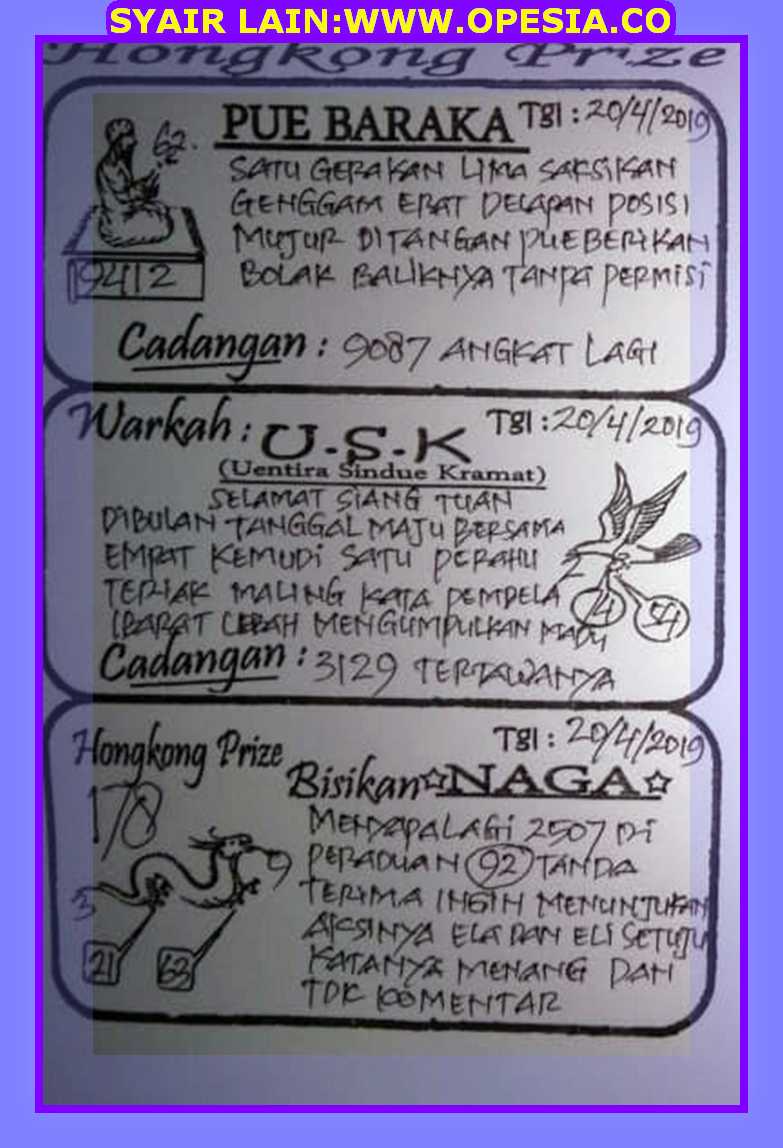 SYAIR LAIN:WWW.OPESIA.CO
Hongkong Prize
PUE BARAKA Tgl : 20/4/2019
62.
SATU GERAKAN LIMA SAKSIKAN
GENGGAM ERAT DELAPAN POSISI
MUJUR DITANGAN PUE BERIKAN
BOLAK BALIKNYA TANPA PERMISI
19412
Cadangan : 9087 ANGKAT LAGI
Warkah : U.S.K Tgl : 20/4/2019
(Uentira Sindue Kramat)
SELAMAT SIANG TUAN
DIBULAN TANGGAL MAJU BERSAMA
EMPAT KEMUDI SATU PERAHU
TERIAK MALING KATA PEMPELA
IBARAT LEBAH MENGUMPULKAN MADU
14 54
Cadangan : 3129 TERTAWANYA
Hongkong Prize Tgl : 20/4/2019
Bisikan NAGA
178
MENYAPA LAGI 2507 DI
PERADUAN 92 TANDA
TERIMA INGIN MENUNJUKAN
AKSINYA ELA DAN ELI SETUJU
KATANYA MENANG DAN
TDK KOMENTAR
9
3
21 63